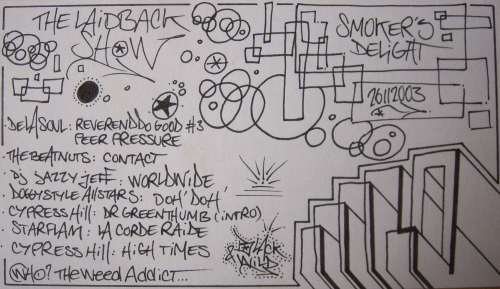 THE LAIDBACK
SHOW
SMOKER'S
DELIGHT
26112003
DE LA SOUL: REVEREND DO GOOD #3
PEER PRESSURE
THE BEATNUTS: CONTACT
DJ JAZZY JEFF: WORLDWIDE
DOGGYSTYLE ALLSTARS: DOH' DOH'
CYPRESS HILL: DR GREENTHUMB (INTRO)
STARFLAM: LA CORDE RAIDE
CYPRESS HILL: HIGH TIMES
WHO? THE WEED ADDICT...
BLACK
WILD